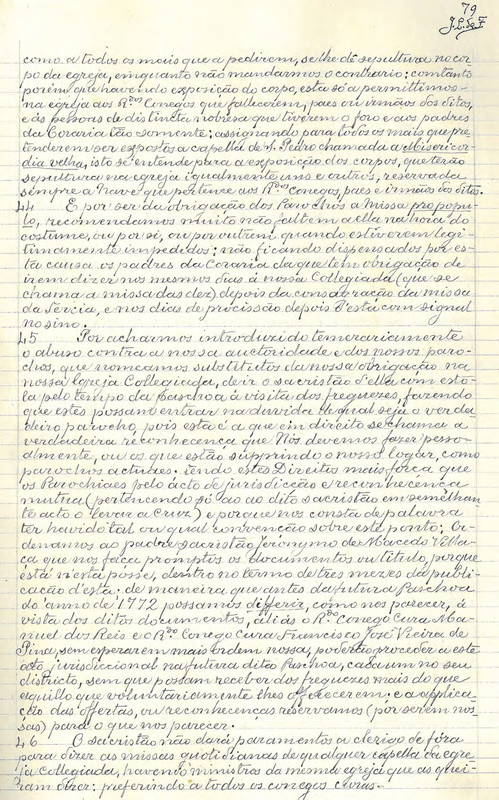 79
J. L. da F.
como a todos os mais que a pedirem, se lhe dê sepultura no cor-
po da egreja, emquanto não mandarmos o contrario; comtanto
porém que havendo exposição do corpo, esta só a permittimos
na egreja aos R.dos Conegos que fallecerem, paes ou irmãos dos ditos,
e ás pessoas de distincta nobresa que tiverem o foro e aos padres
da Coraria tão somente; assignando para todos os mais que pre-
tenderem ser expostos a capella de S. Pedro chamada a Misericor-
dia velha, isto se entende para a exposição dos corpos, que terão
sepultura na egreja igualmente uns e outros, reservada
sempre a nave que pertence aos R.dos Conegos, paes e irmãos dos ditos.
44 E por ser da obrigação dos Parochos a Missa pro popu-
lo, recomendamos muito não faltem a ella na hora do
costume, ou por si, ou por outrem quando estiverem legi-
timamente impedidos; não ficando dispensados por es-
ta causa os padres da Coraria da que tem obrigação de
irem dizer nos mesmos dias á nossa Collegiada (que se
chama a missa das dez) depois da consagração da missa
da Tercia, e nos dias de procissão depois d'esta com signal
no sino.
45 Por acharmos introduzido temerariamente
o abuso contra a nossa auctoridade e dos nossos paro-
chos, que nomeamos substitutos da nossa obrigação na
nossa Egreja Collegiada, de ir o sacristão d'ella com esto-
la pelo tempo da Paschoa á visita dos freguezes, fazendo
que estes possam entrar na duvida de qual seja o verda-
deiro parocho, pois esta é a que em direito se chama a
verdadeira reconhecença que Nós devemos fazer pesso-
almente, ou os que estão supprindo o nosso logar, como
parochos actuaes. tendo estes Direitos mais força que
os Parochiaes pelo acto de jurisdicção e reconhecença
mutua (pertencendo só ao dito sacristão em semelhan-
te acto o levar a cruz) e porque nos consta de palavra
ter havido tal ou qual convenção sobre este ponto; Or-
denamos ao padre sacristão Jeronymo de Macedo Valla-
ça que nos faça promptos os documentos ou titulo, porque
está n'esta posse, dentro no termo de tres mezes da publi-
cação d'esta. de maneira que antes da futura Paschoa
do anno de 1772 possamos differir, como nos parecer, á
vista dos ditos documentos, aliás o R.do Conego Cura Ma-
nuel dos Reis e o R.do Conego Cura Francisco José Vieira de
Pina, sem esperarem mais ordem nossa, poderão proceder a este
acto jurisdiccional na futura dita Paschoa, cada um no seu
districto, sem que possam receber dos freguezes mais do que
aquillo que voluntariamente lhes offerecerem. e a applica-
ção das offertas, ou reconhecenças reservamos (por serem nos-
sas) para o que nos parecer.
46 O sacristão não dará paramentos a clerigo de fóra
para dizer as missas quotidianas de qualquer capella da egre-
ja Collegiada, havendo ministros da mesma egreja que as quei-
ram dizer: preferindo a todos os conegos curas.